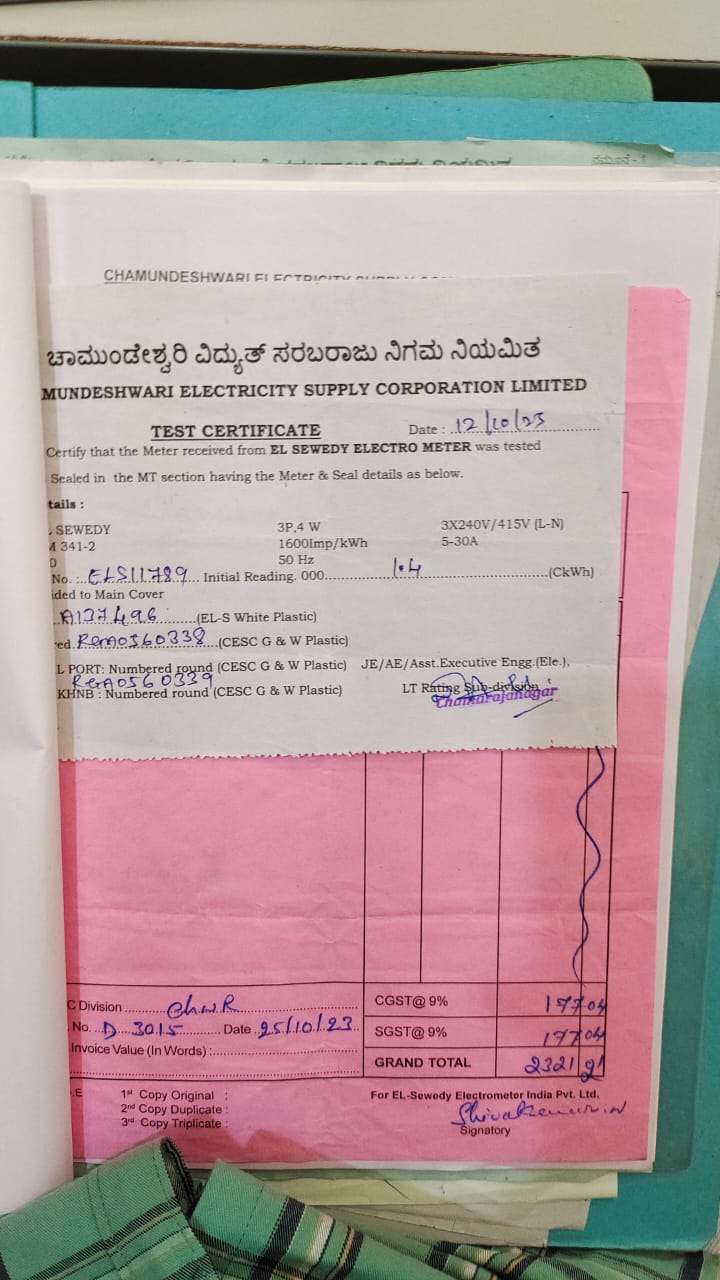 CHAMUNDESHWARI ELECTRICITY SUPPLY
ಚಾಮುಂಡೇಶ್ವರಿ ವಿದ್ಯುತ್ ಸರಬರಾಜು ನಿಗಮ ನಿಯಮಿತ
MUNDESHWARI ELECTRICITY SUPPLY CORPORATION LIMITED
TEST CERTIFICATE Date : 12/10/23
Certify that the Meter received from EL SEWEDY ELECTRO METER was tested
Sealed in the MT section having the Meter & Seal details as below.
tails :
SEWEDY 3P,4 W 3X240V/415V (L-N)
341-2 1600Imp/kWh 5-30A
50 Hz
No. : ELS11789 Initial Reading. 000 1.4 (CkWh)
ded to Main Cover
A137496 (EL-S White Plastic)
red. REMA0560338 (CESC G & W Plastic)
L PORT: Numbered round (CESC G & W Plastic) JE/AE/Asst.Executive Engg.(Ele.),
REMA0560339
KHNB : Numbered round (CESC G & W Plastic) LT Rating Sub-division
Chamarajanagar
C Division Ch.N.R CGST@ 9% 177 04
No. D 3015 Date 25/10/23 SGST@ 9% 177 04
Invoice Value (In Words) : GRAND TOTAL 2321 21
.E 1st Copy Original : For EL-Sewedy Electrometer India Pvt. Ltd.
2nd Copy Duplicate : Shivakumar.N
3rd Copy Triplicate : Signatory